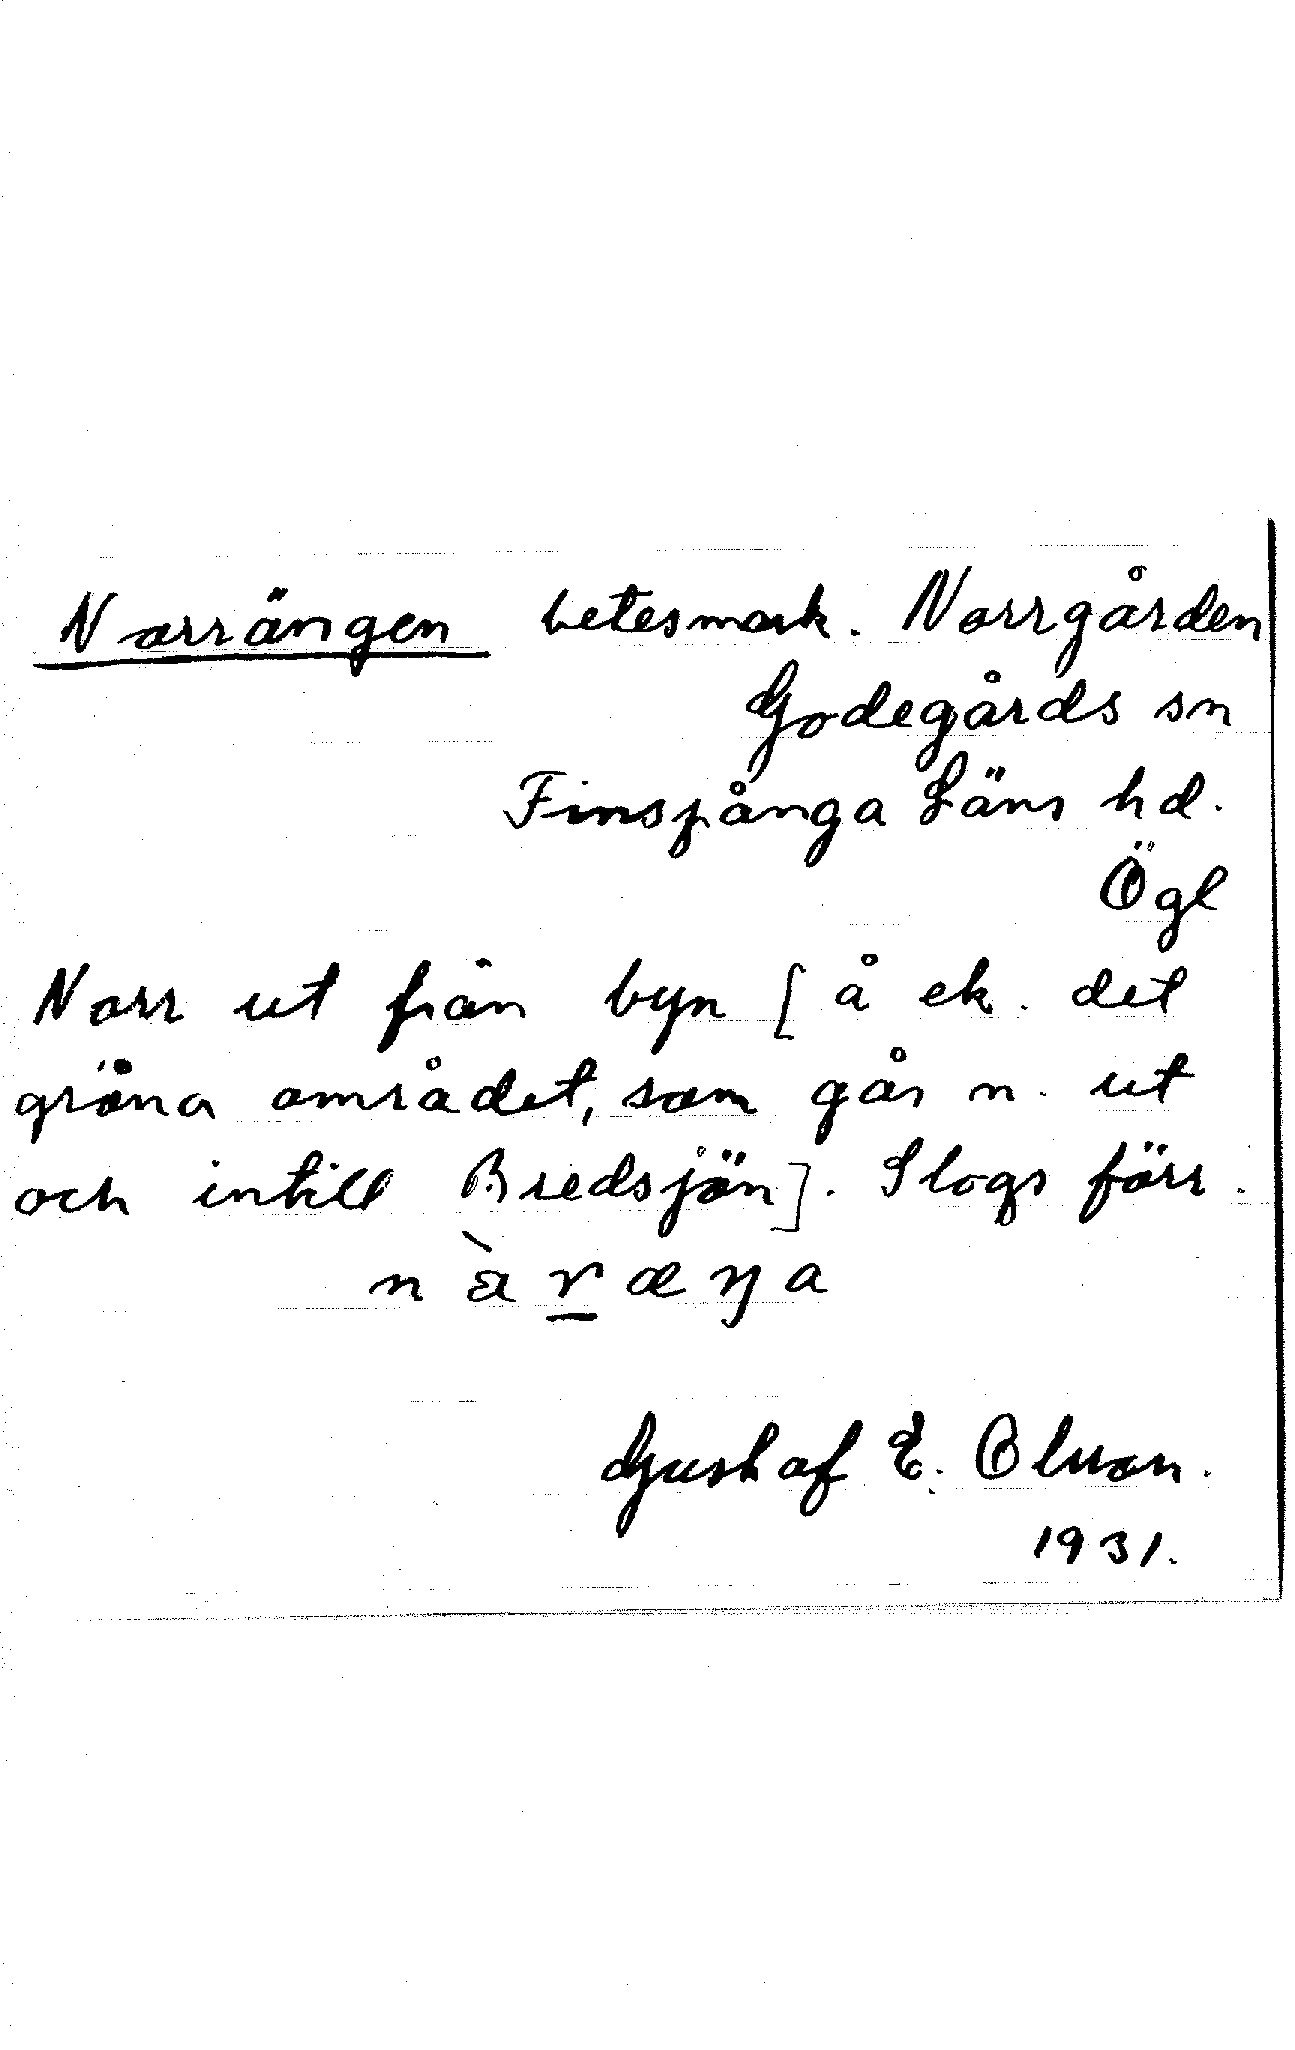 Norrängen betesmark. Norrgården
Godegårds sn
Finspånga Läns hd.
Ögl
Norr ut från byn [å ek. det
gröna området, som går n. ut
och intill Bredsjön]. Slogs förr.
nàræŋa
Gustaf E. Olsson.
1931.